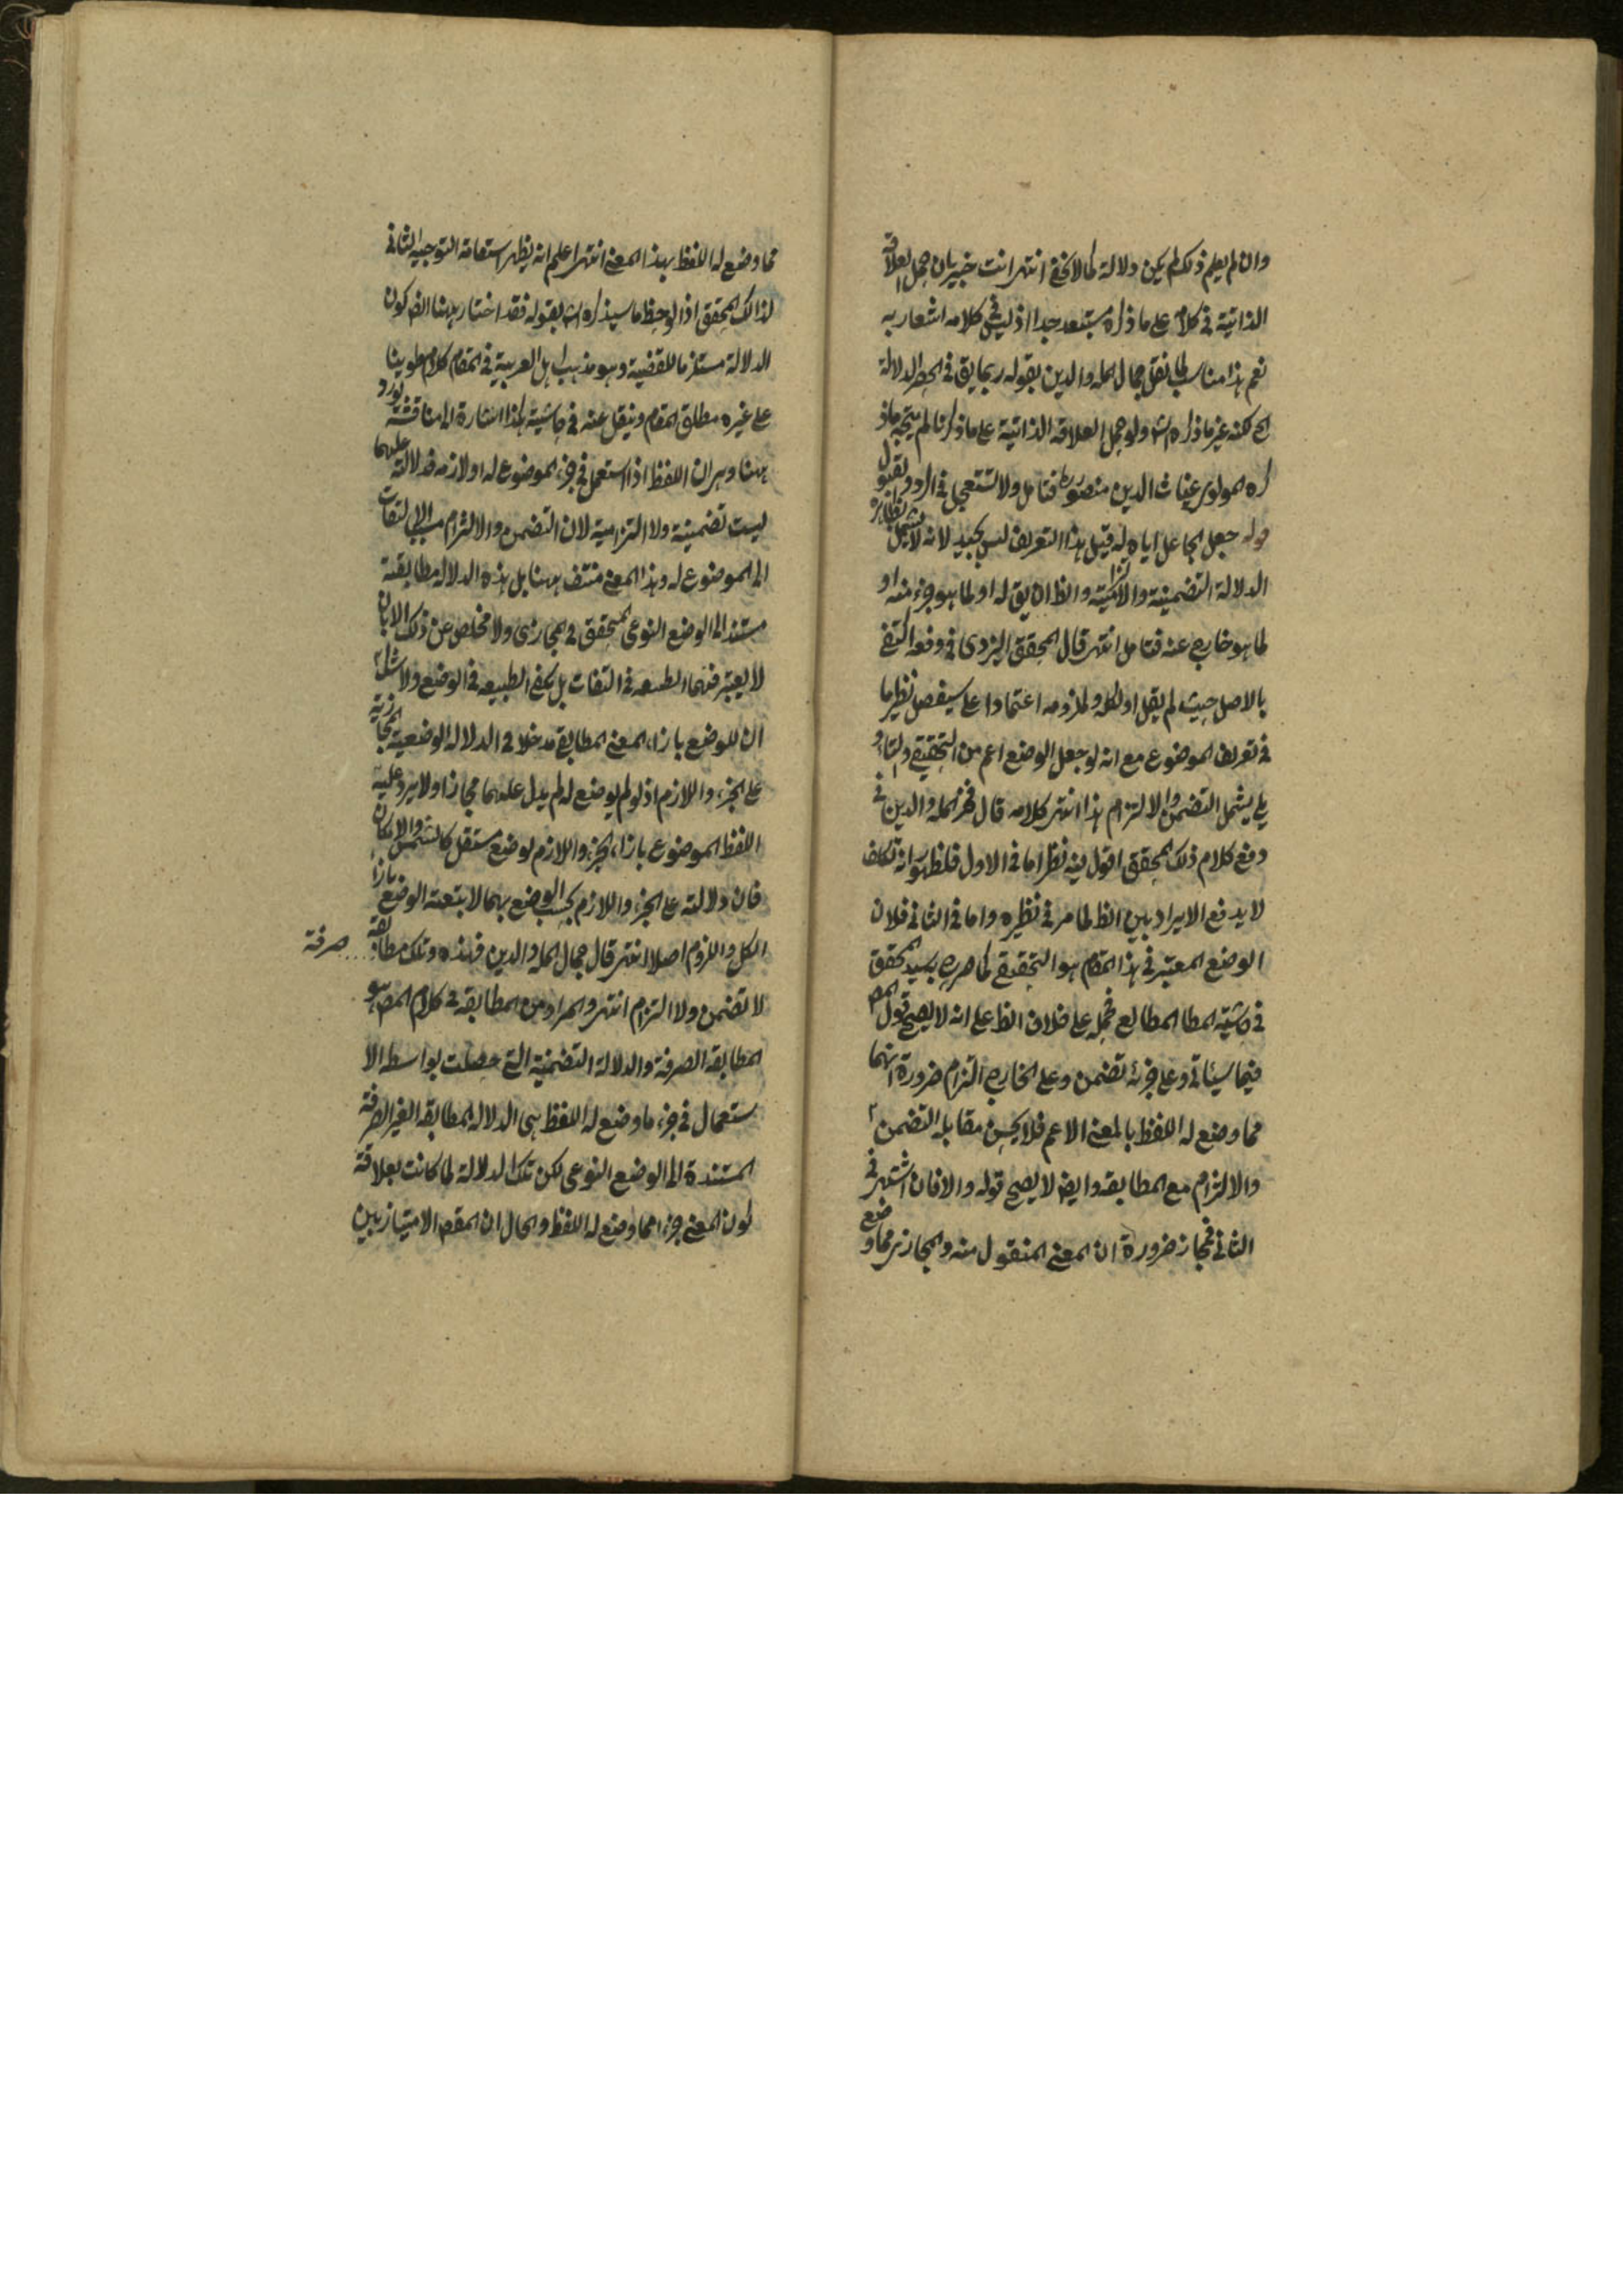 وان لم يعلم ذلك لم يكن دلالة كما لا يخفى انتهى انت خبير بان حمل العلاقة
الذاتية في كلامه على ما ذكره مستبعد جدا اذ ليس في كلامه اشعار به
نعم هذا مناسب لما نقل جمال المله والدين بقوله ربما يق في الحصر الدلالة
لكنه غير ما ذكره الش ولو حمل العلاقة الذاتية على ما ذكرنا لم يتجه ما ذ
كره المولوى غياث الدين منصور فتامل ولا تستعجل في الرد والقبول
قوله جعل الجاعل اياه له قيل هذا التعريف ليس بجيد لانه لا يشمل بظاهره
الدلالة التضمنية والالتزامية والظ ان يق له او لما هو جزء منه او
لما هو خارج عنه فتامل انتهى قال المحقق اليزدى في دفعه اكتفى
بالاصل حيث لم يقل او لكله ولملزومه اعتمادا على سيفصل نظير ما
في تعريف الموضوع مع انه لو جعل الوضع اعم من التحقيقي والتاو
يلى يشمل التضمن والالتزام هذا انتهى كلامه قال فخر المله والدين في
دفع كلام ذلك المحقق اقول فيه نظر اما في الاول فلظهور انه تكلف
لا يدفع الايراد بين الظ لما مر في نظيره واما في الثاني فلان
الوضع المعتبر في هذا المقام هو التحقيقي كما صرح به السيد المحقق
في حاشية المطالع فحمله على خلاف الظ على انه لا يصح قول المصـ
فيما سيئاتي وعلى جزئه تضمن وعلى الخارج التزام ضرورة انهما
مما وضع له اللفظ بالمعنى الاعم فلا يحسن مقابله التضمن
والالتزام مع المطابقه وايضا لا يصح قوله والا فان اشتهر في
الثاني فمجاز ضرورة ان المعنى المنقول منه والمجاز مما وضع
مما وضع له اللفظ بهذا المعنى انتهى اعلم انه يظهر استقامة التوجيه الثاني
لذلك المحقق اذا لوحظ ما سيذكره الش بقوله فقد اختار ههنا كون
الدلالة مستلزما للقضية وهو مذهب اهل العربية في المقام كلام طوينا
على غيره مطلق المقام وينقل عنه في حاشية لهذا اشارة الى مناقشة تورد
ههنا وهى ان اللفظ اذا استعمل في جزء الموضوع له او لازمه فدلالته عليهما
ليست تضمنية ولا التزامية لان التضمن والالتزام بالالتفات
الى الموضوع له وهذا المعنى منتف ههنا بل هذه الدلاله مطابقة
مستند الى الوضع النوعى المتحقق في المجاز ولا مخلص عن ذلك الا بان
لا يعتبر فيهما التبعيه في التفات بل يكفي التبعيه في الوضع ولا شك
ان للوضع بازاء المعنى المطابق مدخلا في الدلاله الوضعية المجازية
على الجزء واللازم اذ لو لم يوضع له لم يدل عليهما مجازا ولا يرد عليه
اللفظ الموضوع بازاء الجزء واللازم لوضع مستقل كالشمس والامكان
فان دلالته على الجزء واللازم بحسب الوضع بهما لا بتبعية الوضع بازاء
الكل والملزوم اصلا انتهى قال جمال المله والدين فهذه وتلك مطابقة صرفة
لا تضمن ولا التزام انتهى والمراد من المطابقه في كلام المصـ هو
المطابقه الصرفة والدلالة التضمنية التي حصلت بواسطه الا
ستعمال في جزء ما وضع له اللفظ هي الدلاله المطابقه الغير الصرفة
المستندة الى الوضع النوعى لكن تلك الدلالة لما كانت بعلاقة
كون المعنى جزءا مما وضع له اللفظ والحال ان المقصـ الامتياز بين